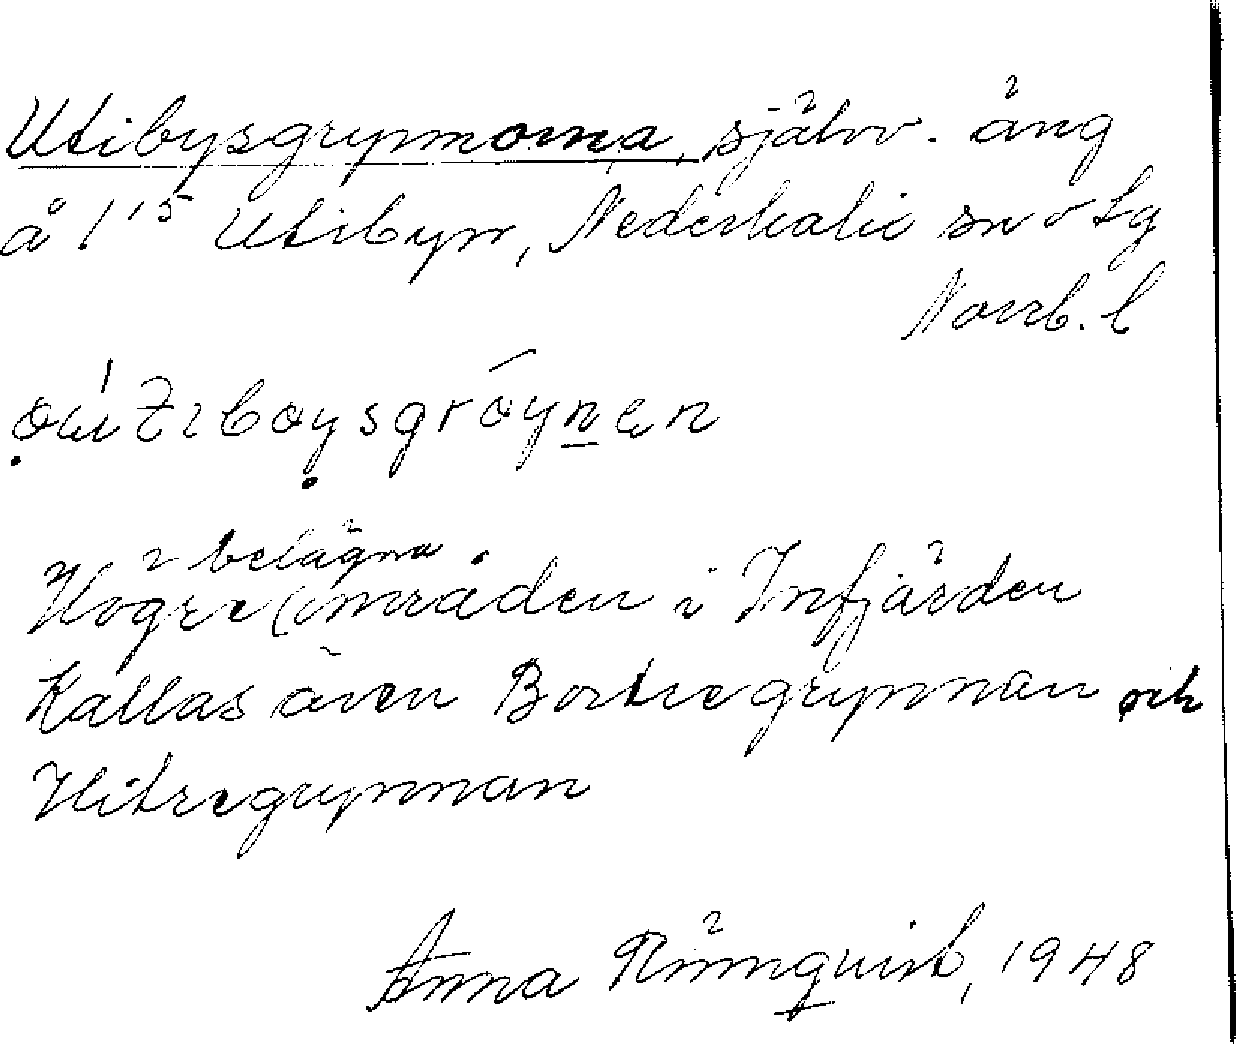 Utibysgrynnorna, självv. äng
å 1¹⁵ Utibyn, Nederkalix sn o tg
Norrb. l
Högre belägna områden i Infjärden
Kallas även Bortregrynnan och
Hitregrynnan
Anna Rönnqvist, 1948